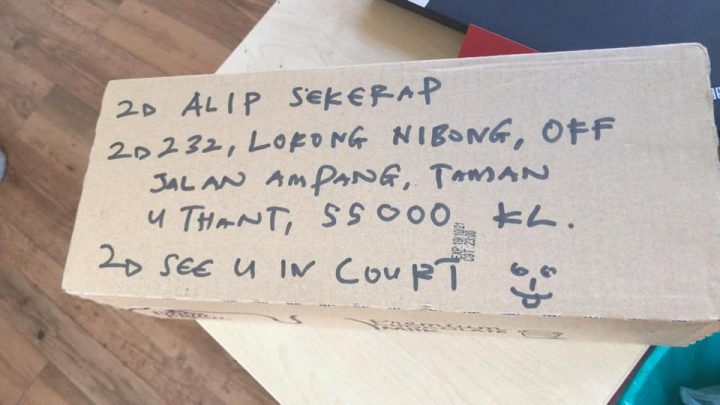 2D ALIP SEKERAP
2D 232, LORONG NIBONG, OFF
JALAN AMPANG, TAMAN
U THANT, 55000 KL.
2D SEE U IN COURT